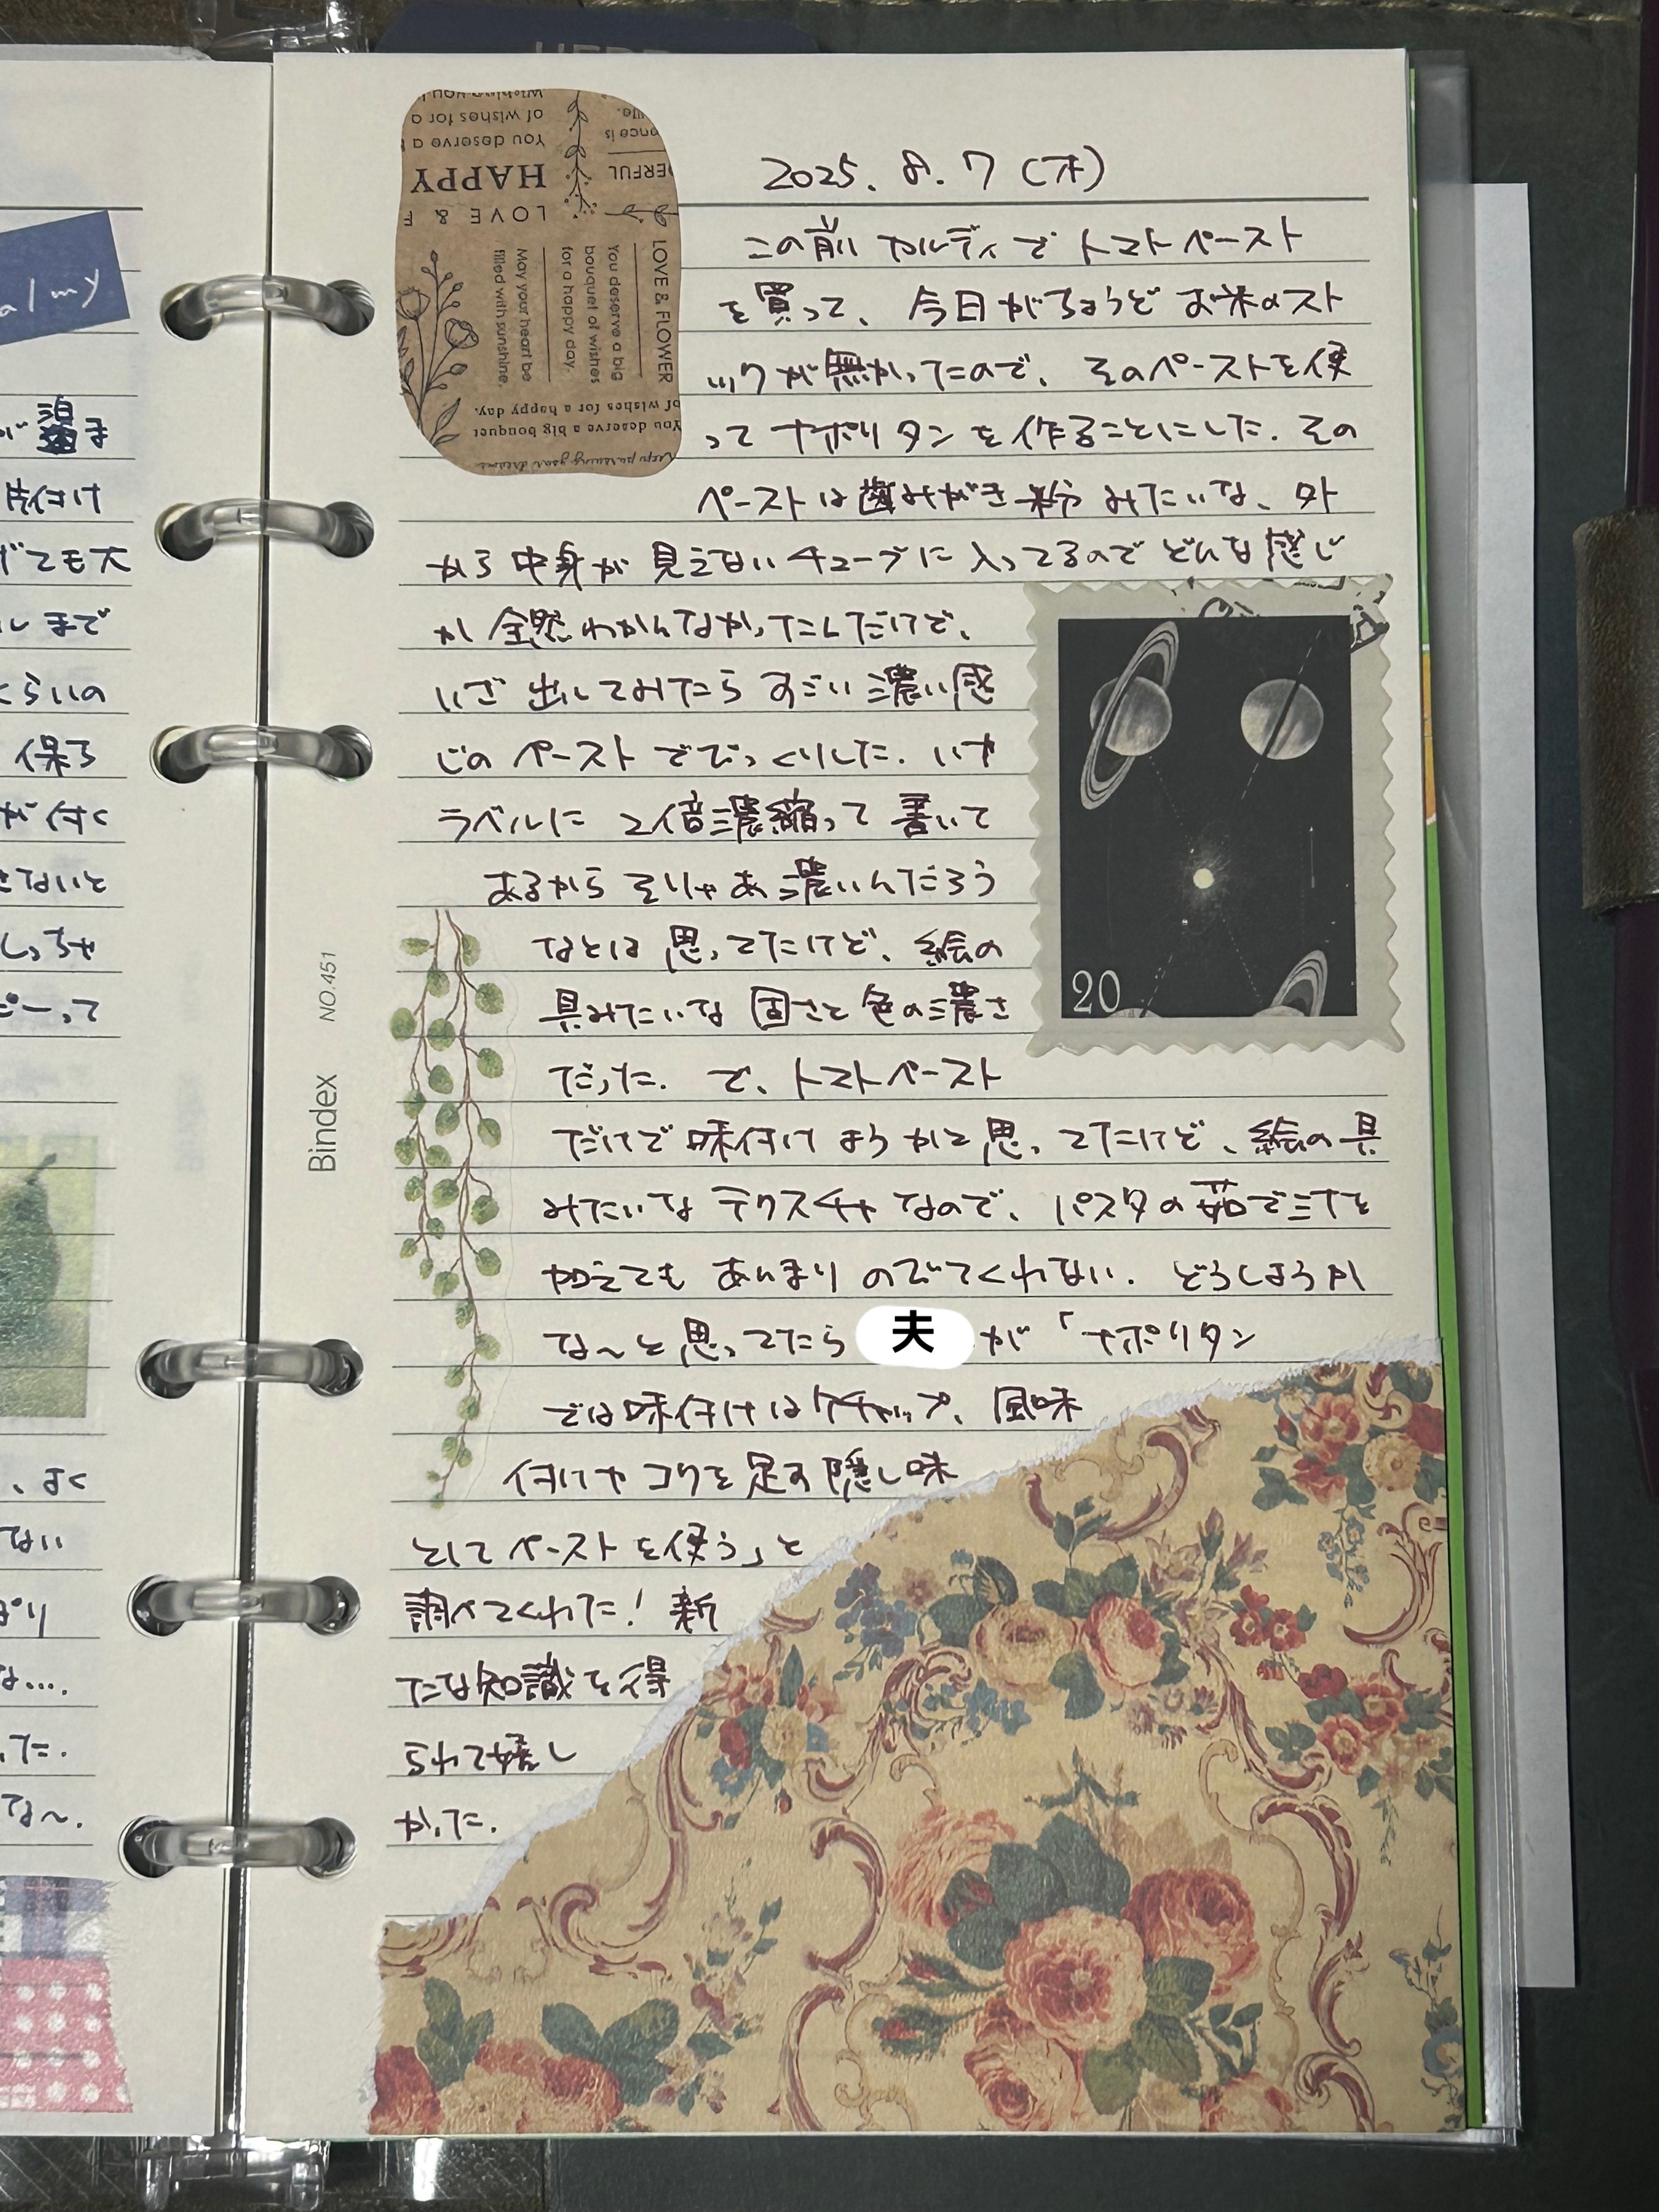 2025. 8. 7 (木)
この前 カルディで トマトペースト
を買って、今日がちょうど お米のスト
ックが無かったので、そのペーストを使
って ナポリタンを作ることにした. その
ペーストは歯みがき粉 みたいな、外
から中身が見えないチューブに入ってるので どんな感じ
か 全然わかんなかったんだけど、
いざ 出してみたら すごい濃い感
じの ペーストでびっくりした. いや
ラベルに 2倍濃縮って 書いて
あるから そりゃあ 濃いんだろう
なとは 思ってたけど、絵の
具みたいな 固さと 色の濃さ
だった. で、トマトペースト
だけで味付けようかと思ってたけど、絵の具
みたいな テクスチャなので、パスタの茹で汁を
加えても あんまり のびてくれない. どうしようか
な〜と 思ってたら 夫 が「ナポリタン
では味付けはケチャップ、風味
付けや コクを足す隠し味
としてペーストを使う」と
調べてくれた! 新
たな知識を得
られて嬉し
かった.
HAPPY
LOVE & F
You deserve a
of wishes for a
ERFUL
LOVE & FLOWER
You deserve a big
bouquet of wishes
for a happy day.
May your heart be
filled with sunshine.
You deserve a big bouquet
of wishes for a happy day.
Keep pursuing your dreams
20
Bindex NO.451
almy
片付け
ても大
まで
くらいの
保ろ
が付く
さないと
しっちゃ
ピーって
、よく
ない
ぱり
な….
った.
な〜.